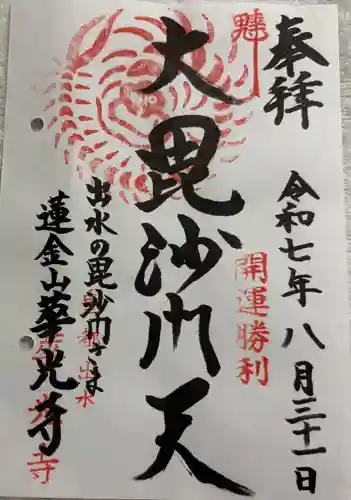 奉拝
令和七年八月三十一日
開運勝利
大毘沙門天
出水の毘沙門さま
出水
蓮金山華光寺
寺